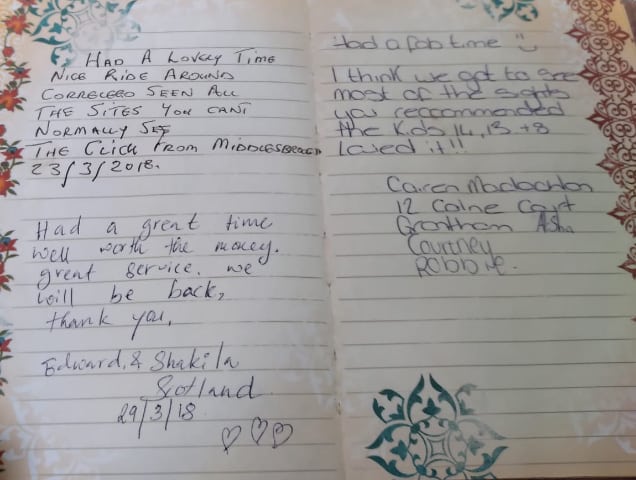 HAD A LOVELY TIME
NICE RIDE AROUND
CORRELEJO SEEN ALL
THE SITES YOU CANT
NORMALLY SEE
THE CLICK FROM MIDDLESBROUGH
23/3/2018.
Had a great time
well worth the money.
great service. we
will be back,
thank you,
Edward, & Shakila
Scotland
29/3/18
Had a fab time
I think we got to see
most of the sights
you reccommended
the kids 14, 13 + 8
Loved it!!!
Cairen
12 Colne Court
Grantham Asha
Courtney
Robbie.